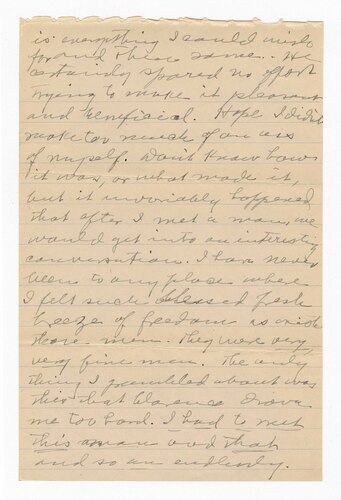 is everything I could wish
for and then some. He
certainly spared no effort
trying to make it pleasant
and beneficial. Hope I didn't
make too much of an ass
of myself. Don't know how
it was, or what made it,
but it invariably happened
that after I met a man, we
would get into an interesting
conversation. I have never
been to any place where
I felt such blessed fresh
breeze of freedom as with
these men. They were very,
very fine men. The only
thing I grumbled about was
this that Clarence drove
me too hard. I had to meet
this man and that
and so on endlessly.